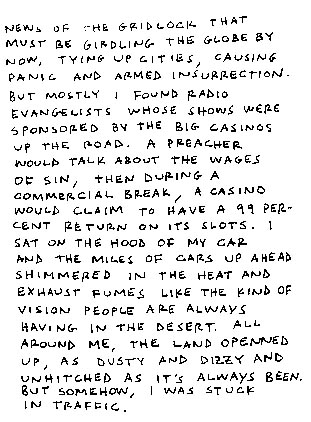 NEWS OF THE GRIDLOCK THAT
MUST BE GIRDLING THE GLOBE BY
NOW, TYING UP CITIES, CAUSING
PANIC AND ARMED INSURRECTION.
BUT MOSTLY I FOUND RADIO
EVANGELISTS WHOSE SHOWS WERE
SPONSORED BY THE BIG CASINOS
UP THE ROAD. A PREACHER
WOULD TALK ABOUT THE WAGES
OF SIN, THEN DURING A
COMMERCIAL BREAK, A CASINO
WOULD CLAIM TO HAVE A 99 PER-
CENT RETURN ON ITS SLOTS. I
SAT ON THE HOOD OF MY CAR
AND THE MILES OF CARS UP AHEAD
SHIMMERED IN THE HEAT AND
EXHAUST FUMES LIKE THE KIND OF
VISION PEOPLE ARE ALWAYS
HAVING IN THE DESERT. ALL
AROUND ME, THE LAND OPENNED
UP, AS DUSTY AND DIZZY AND
UNHITCHED AS IT'S ALWAYS BEEN.
BUT SOMEHOW, I WAS STUCK
IN TRAFFIC.